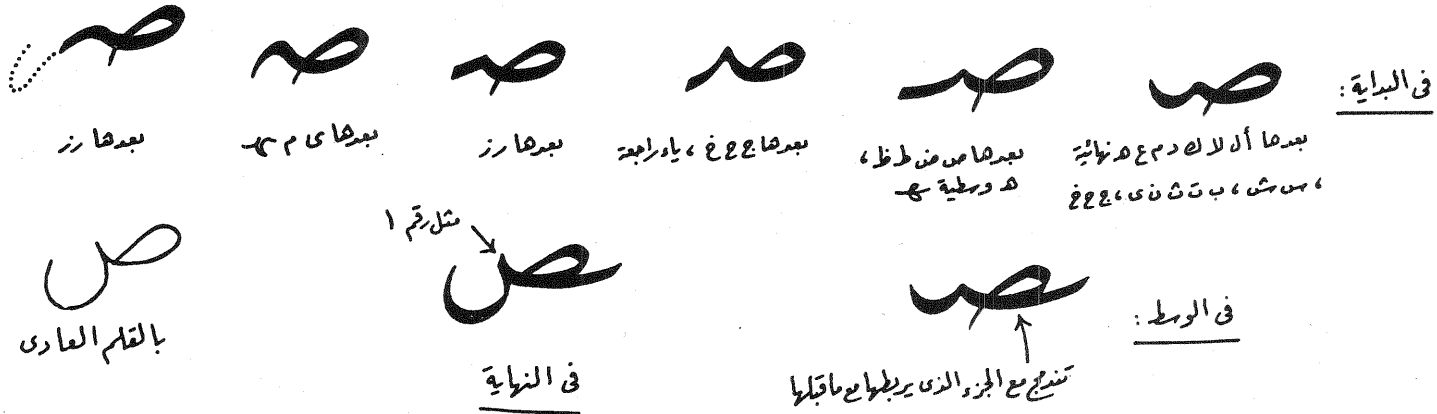 فى البداية :
صـ صـ صـ صـ صـ صـ
بعدها أ ل لا ك د م ع ه نهائية
، س ش ، ب ت ث ن ى ، ج ح خ
بعدها ص ض ط ظ ،
ه وسطية ـهـ
بعدها ج ح خ ، ياء راجعة
بعدها ر ز
بعدها ى م ـهـ
بعدها ر ز
فى الوسط :
ـصـ
تندمج مع الجزء الذى يربطها مع ماقبلها
مثل رقم ١
ـص
فى النهاية
ص
بالقلم العادى